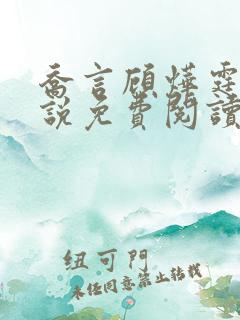 喬言顧燁霆
說免費閱讀
纽可門
未经同意禁止转载